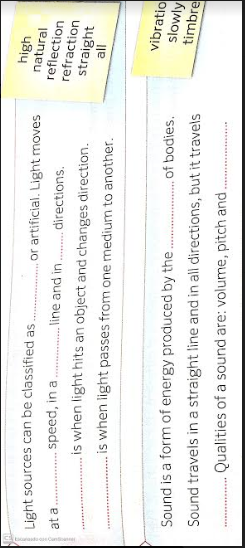 high
natural
reflection
refraction
straight
all
Light sources can be classified as .................... or artificial. Light moves
at a .................... speed, in a .................... line and in .................... directions.
.................... is when light hits an object and changes direction.
.................... is when light passes from one medium to another.
vibratio
slowly
timbre
Sound is a form of energy produced by the .................... of bodies.
Sound travels in a straight line and in all directions, but it travels
.................... Qualities of a sound are: volume, pitch and ....................
CS Escaneado con CamScanner